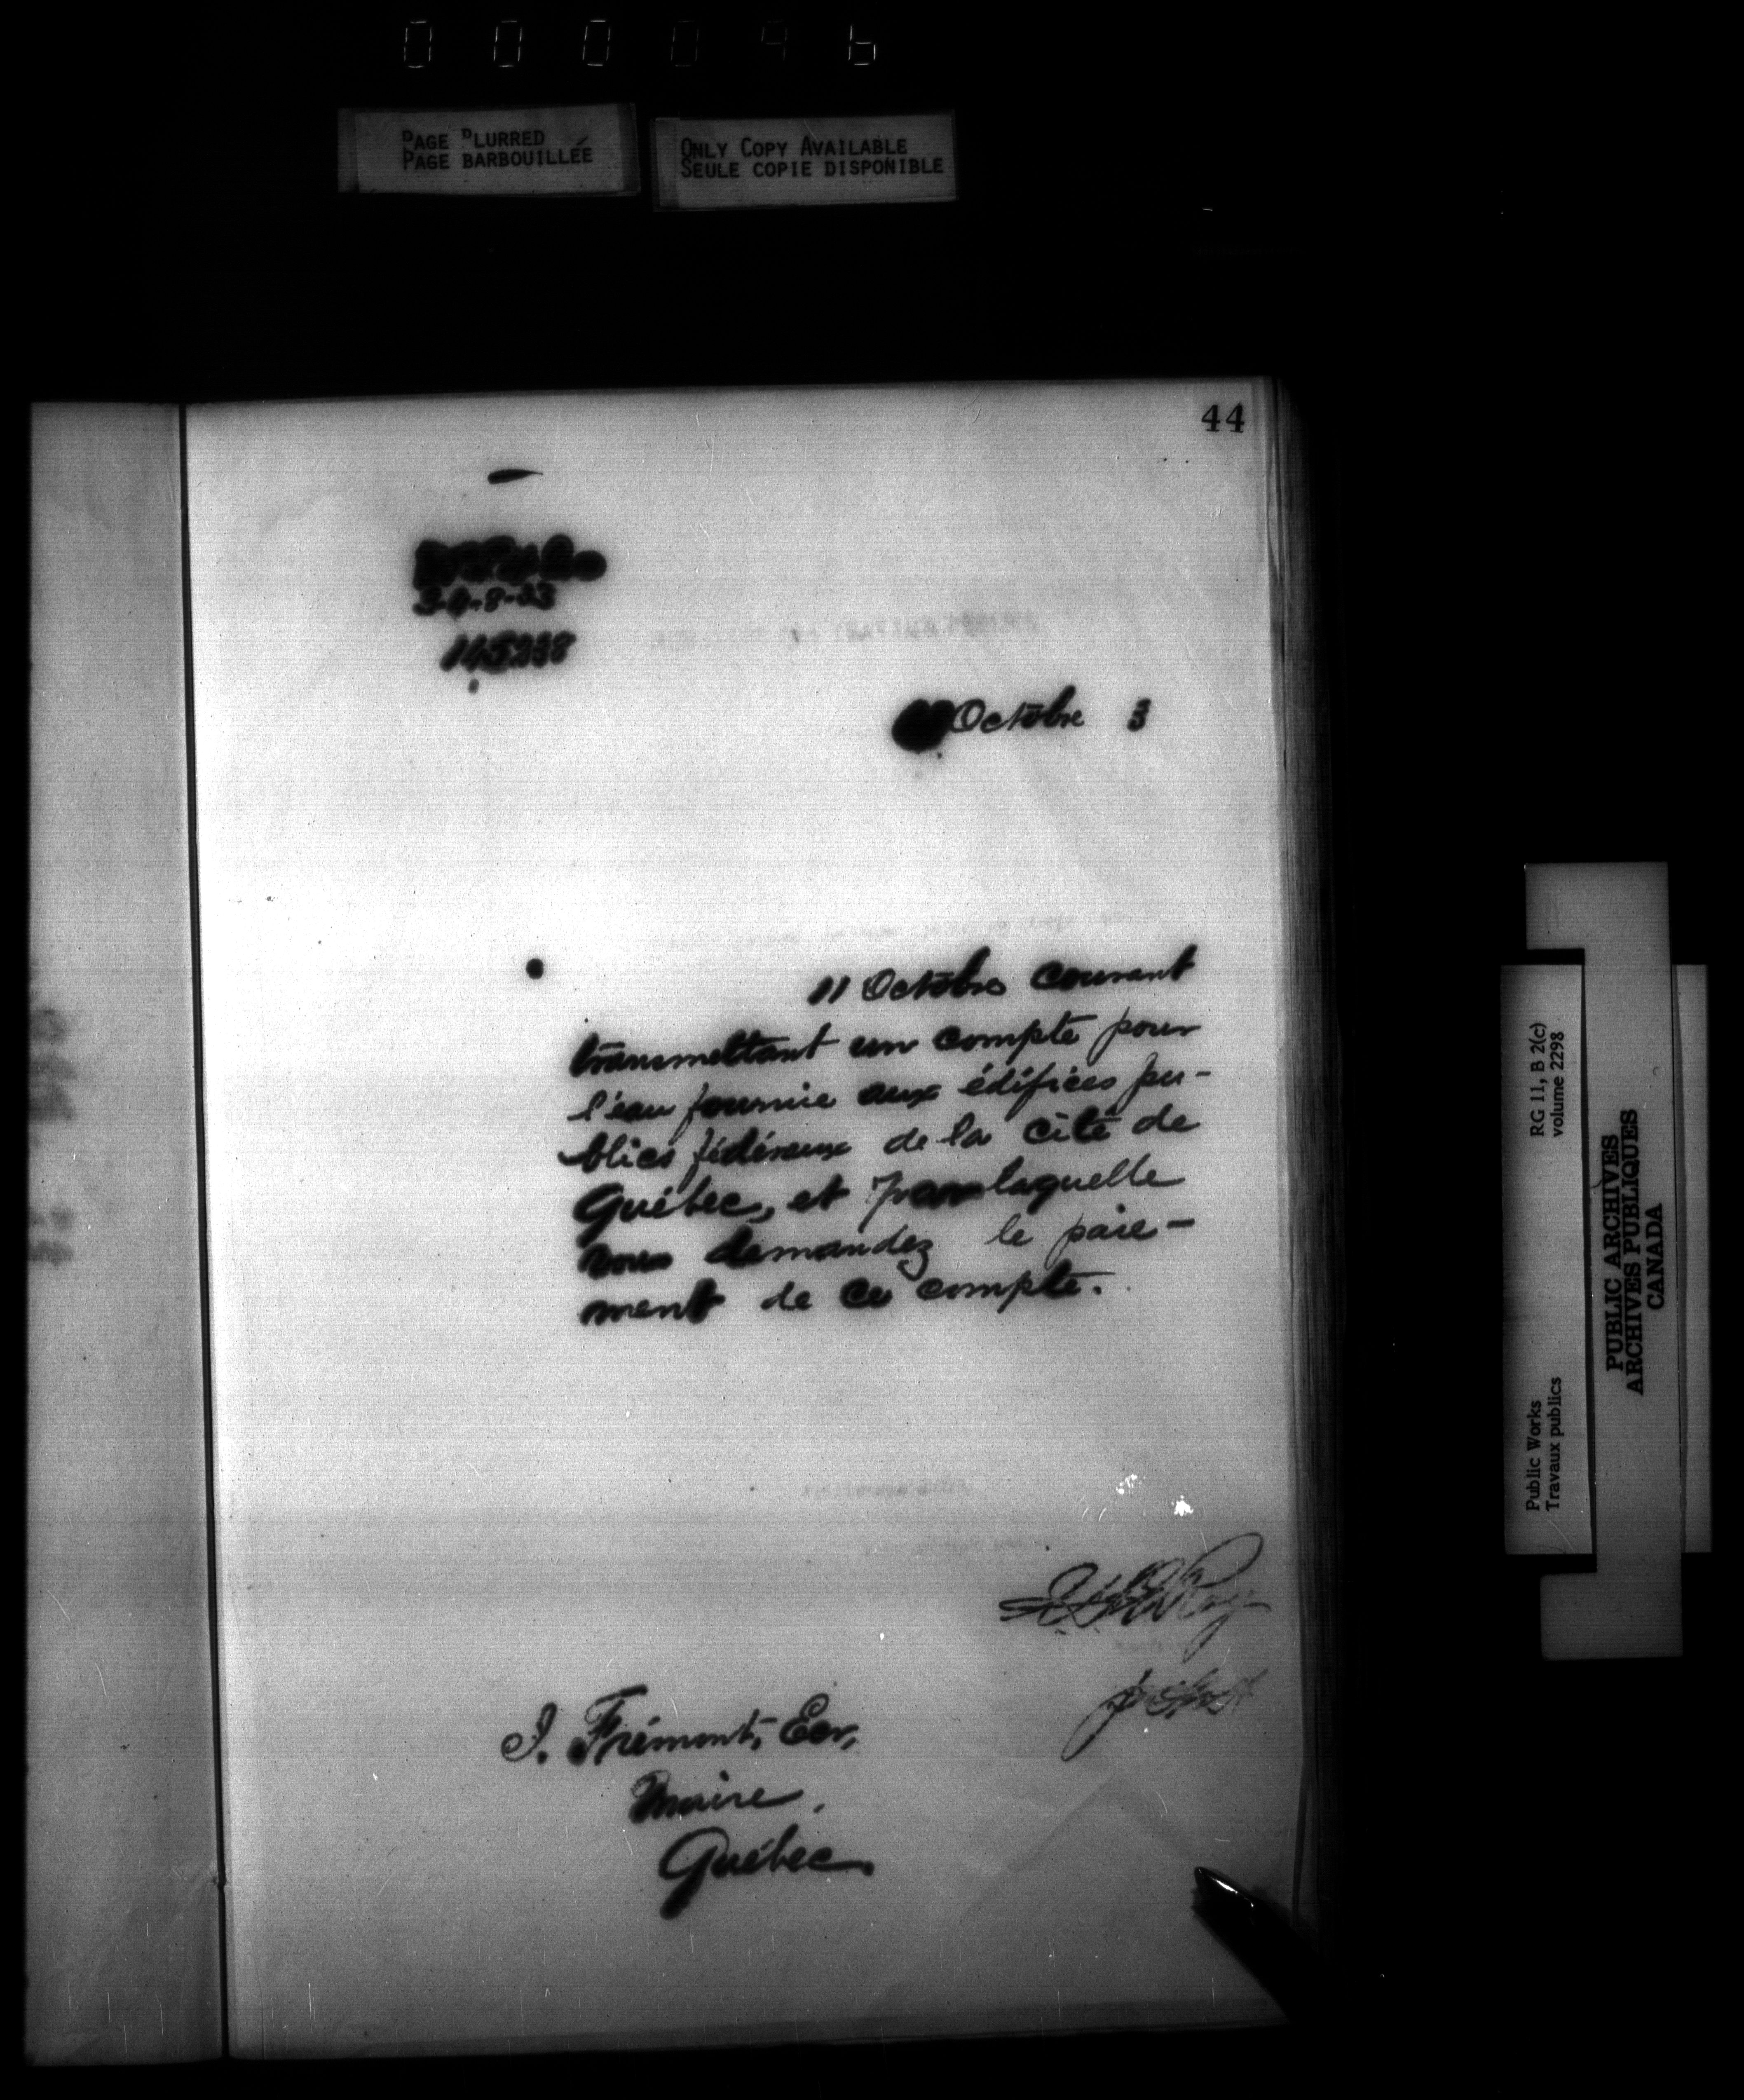 000096
PAGE BLURRED
PAGE BARBOUILLÉE
ONLY COPY AVAILABLE
SEULE COPIE DISPONIBLE
44
145238
Octobre 3
11 Octobre courant
transmettant un compte pour
l'eau fournie aux édifices pu-
blics fédéraux de la cité de
Québec, et par laquelle
vous demandez le paie-
ment de ce compte.
J. Frémont, Ecr,
Maire,
Québec.
RG 11, B 2(c)
volume 2298
Public Works
Travaux publics
PUBLIC ARCHIVES
ARCHIVES PUBLIQUES
CANADA